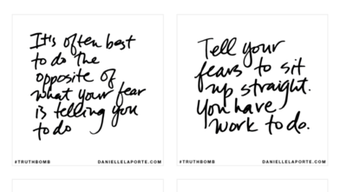 It's often best
to do the
opposite of
what your fear
is telling you
to do
#TRUTHBOMB
DANIELLELAPORTE.COM
Tell your
fears to sit
up straight.
You have
work to do.
#TRUTHBOMB
DANIELLELAPORTE.COM